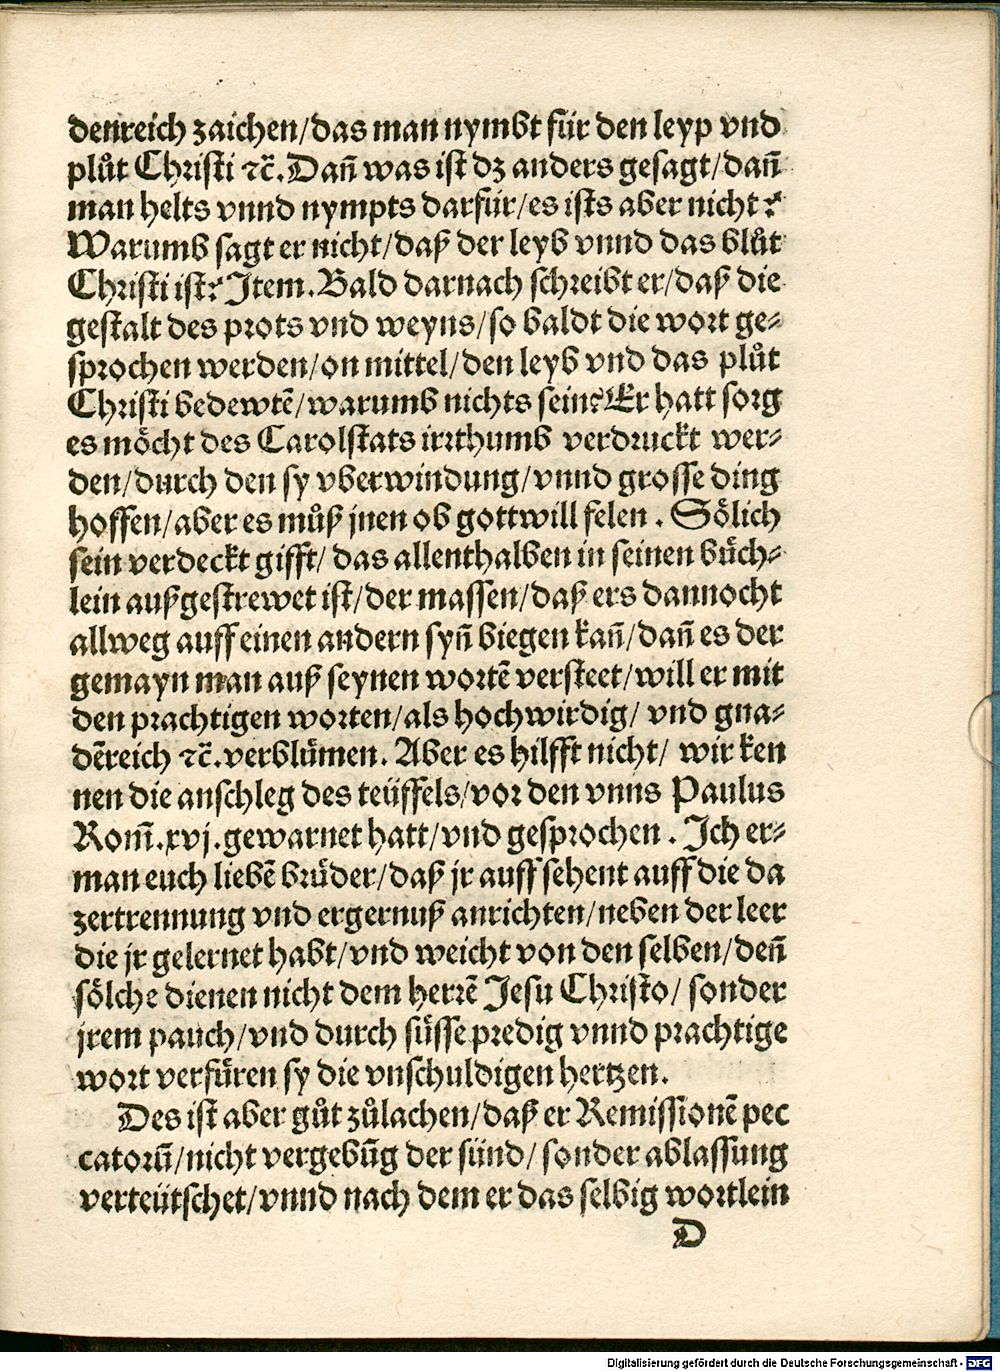 denreich zaichen/das man nymbt für den leyp vnd
plůt Christi ⁊c̃. Dañ was ist dz anders gesagt/dañ
man helts vnnd nympts darfür/es ists aber nicht?
Warumb sagt er nicht/daß der leyb vnnd das blůt
Christi ist? Jtem. Bald darnach schreibt er/daß die
gestalt des prots vnd weyns/so baldt die wort ge⸗
sprochen werden/on mittel/den leyb vnd das plůt
Christi bedewtẽ/warumb nichts sein? Er hatt sorg
es möcht des Carolstats irrthumb verdruckt wer⸗
den/durch den sy vberwindung/vnnd grosse ding
hoffen/aber es můß jnen ob gott will felen. Sölich
sein verdeckt gifft/ das allenthalben in seinen bůch⸗
lein außgestrewet ist/der massen/daß ers dannocht
allweg auff einen andern syñ biegen kañ/dañ es der
gemayn man auß seynen wortẽ versteet/will er mit
den prachtigen worten/als hochwirdig/ vnd gna⸗
dẽreich ⁊c̃. verblůmen. Aber es hilfft nicht/ wir ken
nen die anschleg des teüffels/vor den vnns Paulus
Rom̃.xvj. gewarnet hatt/vnd gesprochen. Jch er⸗
man euch liebẽ brůder/daß jr auff sehent auff die da
zertrennung vnd ergernuß anrichten/neben der leer
die jr gelernet habt/vnd weicht von den selben/deñ
sölche dienen nicht dem herrẽ Jesu Christo/ sonder
jrem pauch/vnd durch sůsse predig vnnd prachtige
wort verfůren sy die vnschuldigen hertzen.
Des ist aber gůt zůlachen/daß er Remissionẽ pec
catorũ/nicht vergebũg der sünd/ sonder ablassung
verteütschet/vnnd nach dem er das selbig wortlein
D
Digitalisierung gefördert durch die Deutsche Forschungsgemeinschaft - DFG